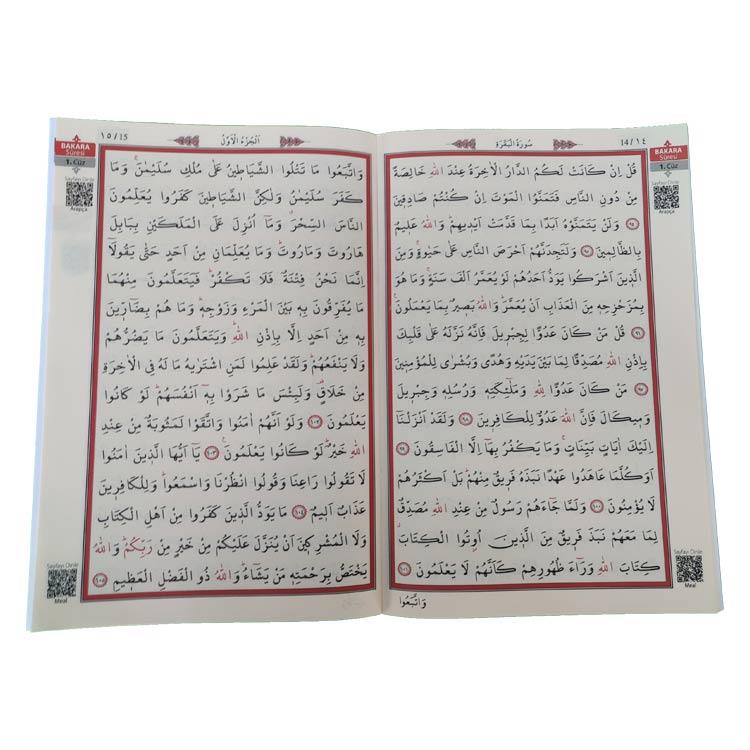 14/١٤
سُورَةُ الْبَقَرَةِ
BAKARA
Sûresi
1. Cüz
Sayfayı Dinle
Arapça
قُلْ اِنْ كَانَتْ لَكُمُ الدَّارُ الْاٰخِرَةُ عِنْدَ اللّٰهِ خَالِصَةً
مِنْ دُونِ النَّاسِ فَتَمَنَّوُا الْمَوْتَ اِنْ كُنْتُمْ صَادِقٖينَ
﴿٩٤﴾ وَلَنْ يَتَمَنَّوْهُ اَبَدًا بِمَا قَدَّمَتْ اَيْدٖيهِمْ وَاللّٰهُ عَلٖيمٌ
بِالظَّالِمٖينَ ﴿٩٥﴾ وَلَتَجِدَنَّهُمْ اَحْرَصَ النَّاسِ عَلٰى حَيٰوةٍ وَمِنَ
الَّذٖينَ اَشْرَكُوا يَوَدُّ اَحَدُهُمْ لَوْ يُعَمَّرُ اَلْفَ سَنَةٍ وَمَا هُوَ
بِمُزَحْزِحِهٖ مِنَ الْعَذَابِ اَنْ يُعَمَّرَ وَاللّٰهُ بَصٖيرٌ بِمَا يَعْمَلُونَ
﴿٩٦﴾ قُلْ مَنْ كَانَ عَدُوًّا لِجِبْرٖيلَ فَاِنَّهُ نَزَّلَهُ عَلٰى قَلْبِكَ
بِاِذْنِ اللّٰهِ مُصَدِّقًا لِمَا بَيْنَ يَدَيْهِ وَهُدًى وَبُشْرٰى لِلْمُؤْمِنٖينَ
﴿٩٧﴾ مَنْ كَانَ عَدُوًّا لِلّٰهِ وَمَلٰٓئِكَتِهٖ وَرُسُلِهٖ وَجِبْرٖيلَ
وَمٖيكَالَ فَاِنَّ اللّٰهَ عَدُوٌّ لِلْكَافِرٖينَ ﴿٩٨﴾ وَلَقَدْ اَنْزَلْنَٓا
اِلَيْكَ اٰيَاتٍ بَيِّنَاتٍ وَمَا يَكْفُرُ بِهَٓا اِلَّا الْفَاسِقُونَ ﴿٩٩﴾
اَوَكُلَّمَا عَاهَدُوا عَهْدًا نَبَذَهُ فَرٖيقٌ مِنْهُمْ بَلْ اَكْثَرُهُمْ
لَا يُؤْمِنُونَ ﴿١٠٠﴾ وَلَمَّا جَٓاءَهُمْ رَسُولٌ مِنْ عِنْدِ اللّٰهِ مُصَدِّقٌ
لِمَا مَعَهُمْ نَبَذَ فَرٖيقٌ مِنَ الَّذٖينَ اُوتُوا الْكِتَابَ
كِتَابَ اللّٰهِ وَرَٓاءَ ظُهُورِهِمْ كَاَنَّهُمْ لَا يَعْلَمُونَ ﴿١٠١﴾
وَاتَّبَعُوا
Sayfayı Dinle
Meal
15/١٥
اَلْجُزْءُ الْاَوَّلُ
BAKARA
Sûresi
1. Cüz
Sayfayı Dinle
Arapça
وَاتَّبَعُوا مَا تَتْلُوا الشَّيَاطٖينُ عَلٰى مُلْكِ سُلَيْمٰنَ وَمَا
كَفَرَ سُلَيْمٰنُ وَلٰكِنَّ الشَّيَاطٖينَ كَفَرُوا يُعَلِّمُونَ
النَّاسَ السِّحْرَ وَمَٓا اُنْزِلَ عَلَى الْمَلَكَيْنِ بِبَابِلَ
هَارُوتَ وَمَارُوتَ وَمَا يُعَلِّمَانِ مِنْ اَحَدٍ حَتّٰى يَقُولَٓا
اِنَّمَا نَحْنُ فِتْنَةٌ فَلَا تَكْفُرْ فَيَتَعَلَّمُونَ مِنْهُمَا
مَا يُفَرِّقُونَ بِهٖ بَيْنَ الْمَرْءِ وَزَوْجِهٖ وَمَا هُمْ بِضَٓارّٖينَ
بِهٖ مِنْ اَحَدٍ اِلَّا بِاِذْنِ اللّٰهِ وَيَتَعَلَّمُونَ مَا يَضُرُّهُمْ
وَلَا يَنْفَعُهُمْ وَلَقَدْ عَلِمُوا لَمَنِ اشْتَرٰيهُ مَا لَهُ فِي الْاٰخِرَةِ
مِنْ خَلَاقٍ وَلَبِئْسَ مَا شَرَوْا بِهٖٓ اَنْفُسَهُمْ لَوْ كَانُوا
يَعْلَمُونَ ﴿١٠٢﴾ وَلَوْ اَنَّهُمْ اٰمَنُوا وَاتَّقَوْا لَمَثُوبَةٌ مِنْ عِنْدِ
اللّٰهِ خَيْرٌ لَوْ كَانُوا يَعْلَمُونَ ﴿١٠٣﴾ يَٓا اَيُّهَا الَّذٖينَ اٰمَنُوا
لَا تَقُولُوا رَاعِنَا وَقُولُوا انْظُرْنَا وَاسْمَعُوا وَلِلْكَافِرٖينَ
عَذَابٌ اَلٖيمٌ ﴿١٠٤﴾ مَا يَوَدُّ الَّذٖينَ كَفَرُوا مِنْ اَهْلِ الْكِتَابِ
وَلَا الْمُشْرِكٖينَ اَنْ يُنَزَّلَ عَلَيْكُمْ مِنْ خَيْرٍ مِنْ رَبِّكُمْ وَاللّٰهُ
يَخْتَصُّ بِرَحْمَتِهٖ مَنْ يَشَٓاءُ وَاللّٰهُ ذُو الْفَضْلِ الْعَظٖيمِ ﴿١٠٥﴾
Sayfayı Dinle
Meal